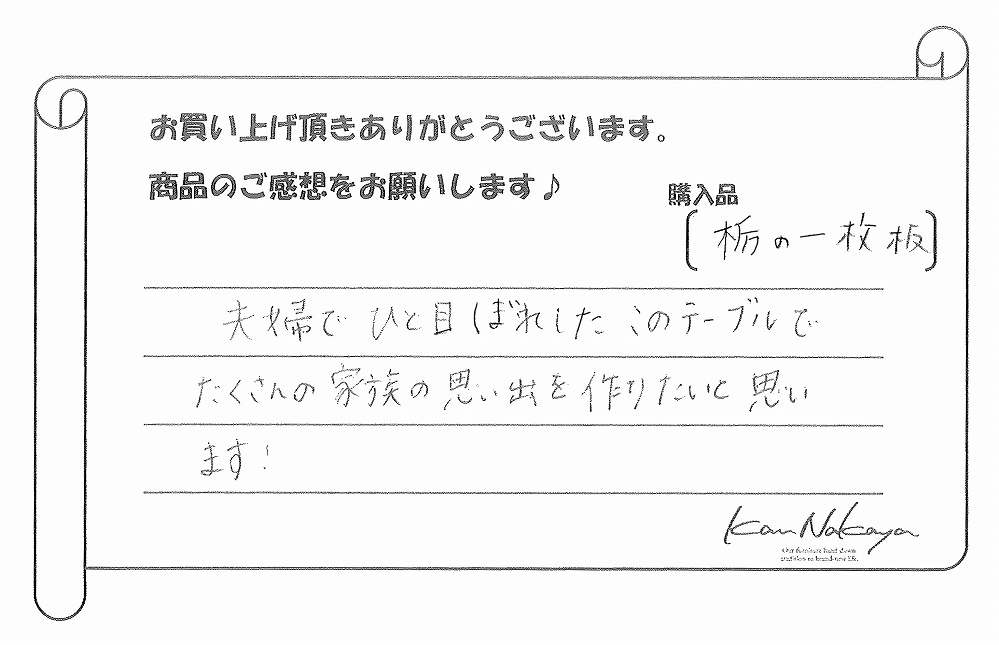 お買い上げ頂きありがとうございます。
商品のご感想をお願いします♪
購入品
[栃の一枚板]
夫婦でひと目ぼれしたこのテーブルで
たくさんの家族の思い出を作りたいと思い
ます!
Kan Nakaya
Our furniture hand down
partition to brand-new life.